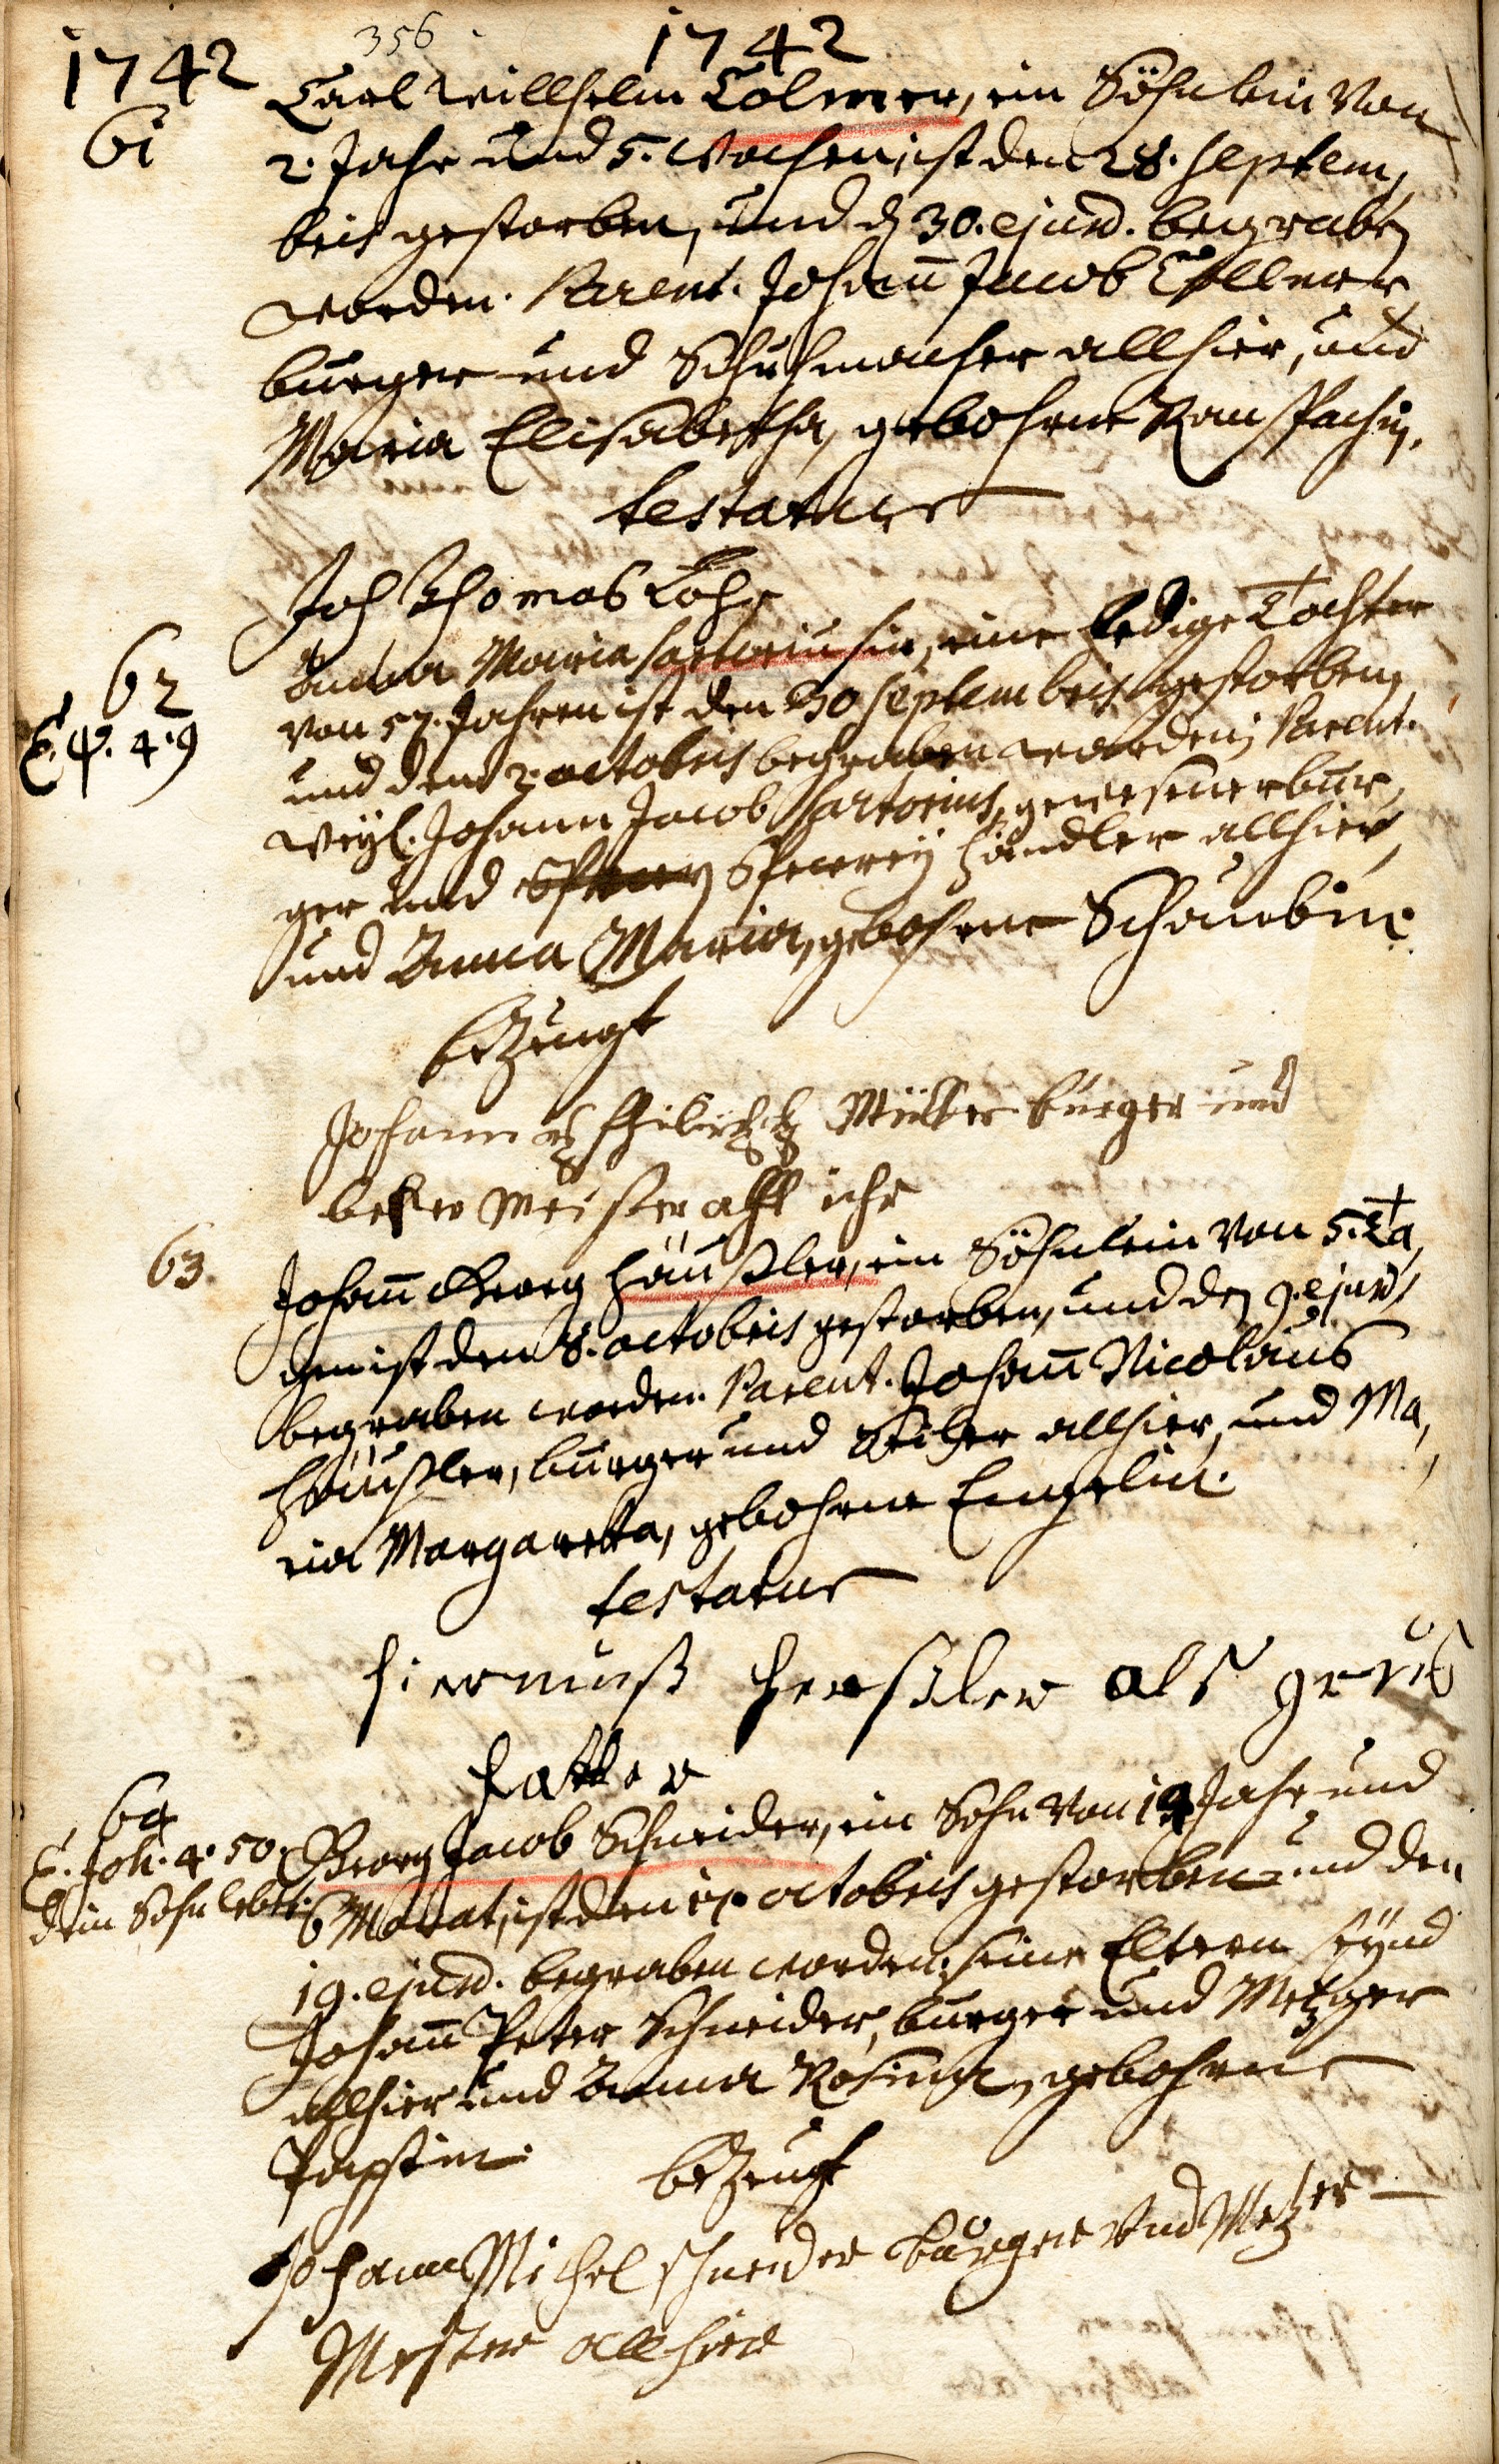 356
1742 1742
61 Carl Willhelm Colmer, ein Söhnlein von
2. Jahr und 5. Wochen, ist den 28. Septem,
bris gestorben, und d 30. ejusd. begraben
worden. Parent. Johann Jacob Collmer
burger und Schuhmacher allhier, und
Maria Elisabetha, gebohrne
testatur
Joh Thomas Löhr
62 Anna Maria Sartoriusin, eine ledige Tochter
E. Ψ. 4. 9 von 57. Jahren ist den 30 Septembris gestorben,
und den 2. octobris begraben worden, Parent.
weyl. Johann Jacob Sartorius, gewesener bur,
ger und Specerey händler allhier,
und Anna Maria, gebohrne Schaubin.
bezeugt
Johannes Müller burger und
beker Meister all hihr
63. Johann Georg Häußler, ein Söhnlein von 5. Ta,
gen ist den 8. octobris gestorben, und den 9. ejusd.
begraben worden. Parent. Johann Nicolaus
Häußler, burger und Seiler allhier, und Ma,
ria Margaretha, gebohrne Engelin.
testatur
hieronimuß Heußler als groß
Vatter
64 Georg Jacob Schneider, ein Sohn von 14 Jahr und
E. Joh. 4. 50. 6 Monat, ist den 17. octobris gestorben und den
dein Sohn lebet.
19. ejusd. begraben worden. seine Eltern seynd
Johann Peter Schneider, burger und Metzger
allhier und Anna Rosina, gebohrne
Papstin. bezeugt
Johann Michel schneider burger und Metzer
Meister allhier